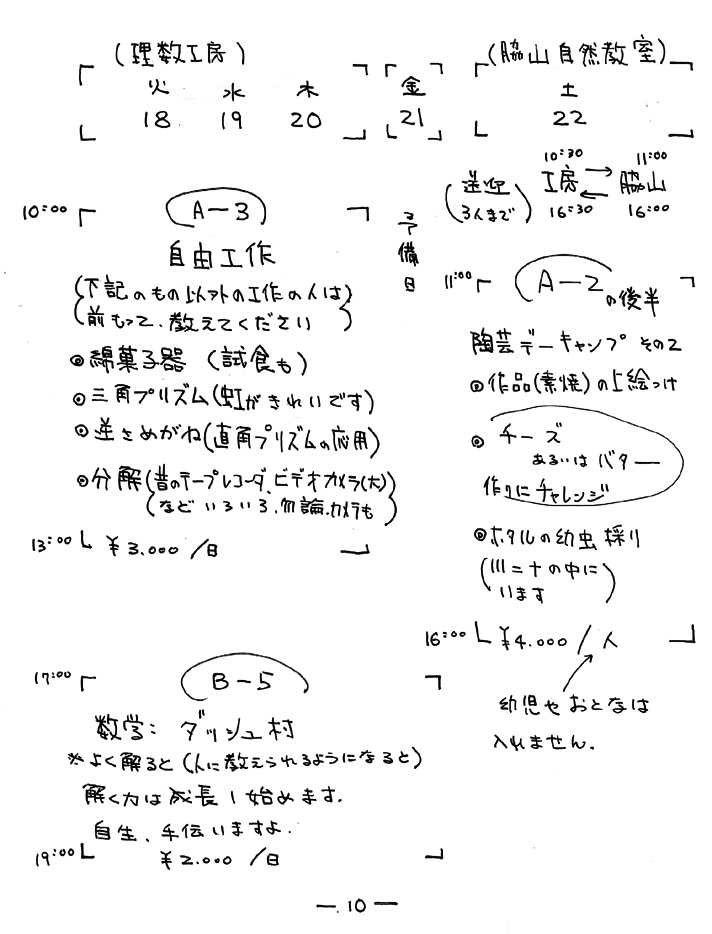 (理数工房)
(脇山自然教室)
火 水 木 金 土
18 19 20 21 22
予備日
10:00
A-3
自由工作
(下記のもの以外の工作の人は
前もって、教えてください)
◎綿菓子器 (試食も)
◎三角プリズム(虹がきれいです)
◎逆さめがね(直角プリズムの応用)
◎分解(昔のテープレコーダ、ビデオカメラ(大)
などいろいろ、勿論、カメラも)
13:00 ¥3.000/日
17:00
B-5
数学: ダッシュ村
※よく解ると(人に教えられるようになると)
解く力は成長し始めます.
自生、手伝いますよ.
19:00 ¥2.000/日
(送迎
3人まで)
10:30 11:00
工房 脇山
16:30 16:00
11:00
A-2の後半
陶芸デーキャンプ その2
◎作品(素焼)の上絵つけ
◎チーズ
あるいは バター
作りにチャレンジ
◎ホタルの幼虫採り
(川ニナの中に
います)
16:00 ¥4.000/人
幼児やおとなは
入れません.
— 10 —